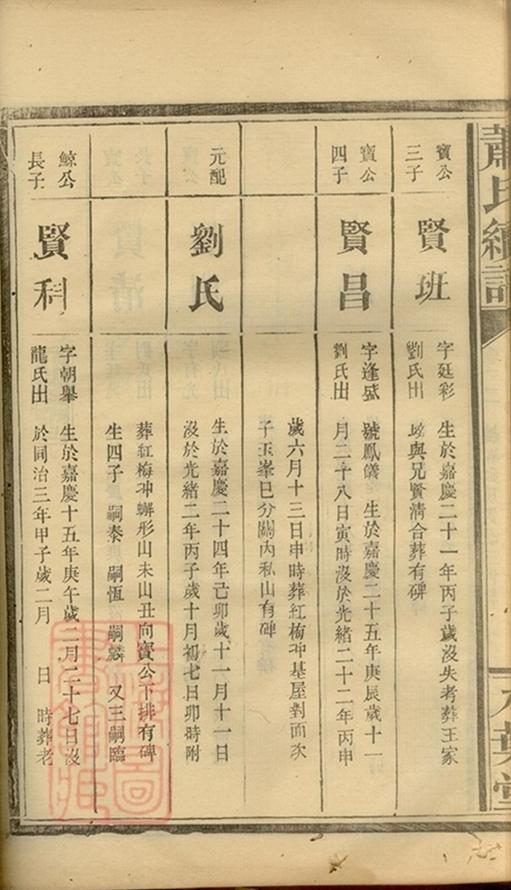 蕭氏續譜
八葉堂
寶公三子
賢班
字廷彩
劉氏出
生於嘉慶二十一年丙子歲沒失考葬王家
塝與兄賢清合葬有碑
寶公四子
賢昌
字逢盛
劉氏出
號鳳儀 生於嘉慶二十五年庚辰歲十一
月二十八日寅時沒於光緒二十二年丙申
歲六月十三日申時葬紅梅冲基屋對面次
子玉峯已分關內私山有碑
元配
劉氏
生於嘉慶二十四年己卯歲十一月十一日
沒於光緒二年丙子歲十月初七日卯時附
葬紅梅冲蠏形山未山丑向寶公下排有碑
生四子 嗣泰 嗣恆 嗣麟 又三嗣臨
鯨公長子
賢科
字朝舉
龍氏出
生於嘉慶十五年庚午歲二月二十七日沒
於同治三年甲子歲二月 日 時葬老